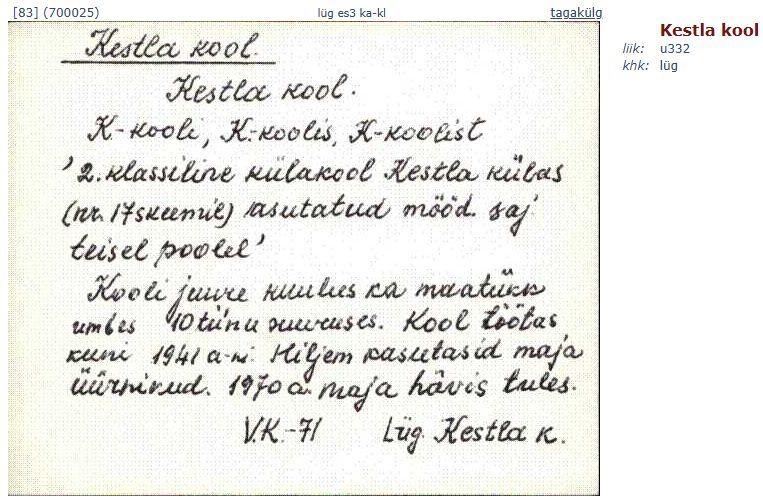 [83] (700025) lüg es3 ka-kl tagakülg
Kestla kool
liik: u332
khk: lüg
Kestla kool.
Kestla kool.
K.-kooli, K.-koolis, K-koolist
'2. klassiline külakool Kestla külas
(nr. 17 skeemil) asutatud mööd. saj.
teisel poolel'
Kooli juure kuulus ka maatükk
umbes 10 tiinu suuruses. Kool töötas
kuni 1941 a-ni. Hiljem kasutasid maja
üürnikud. 1970 a. maja hävis tules.
V.K.-71 Lüg. Kestla k.